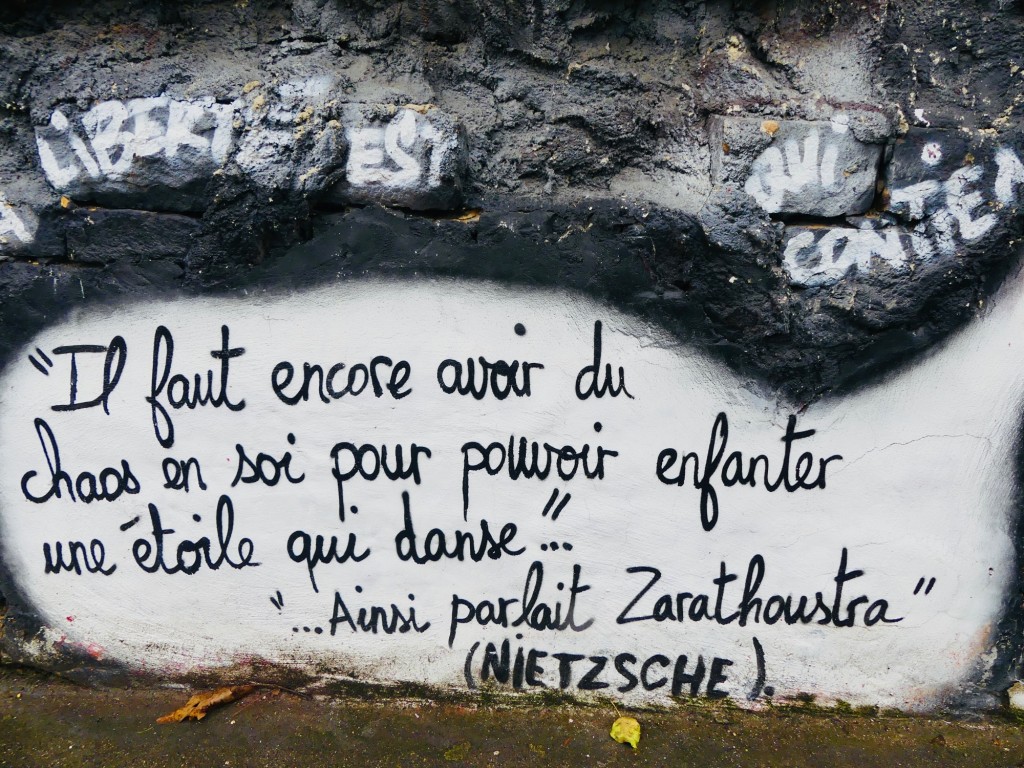 LIBERTÉ EST QUI
CONTIEN
"Il faut encore avoir du
chaos en soi pour pouvoir enfanter
une étoile qui danse"...
"...Ainsi parlait Zarathoustra"
(NIETZSCHE).